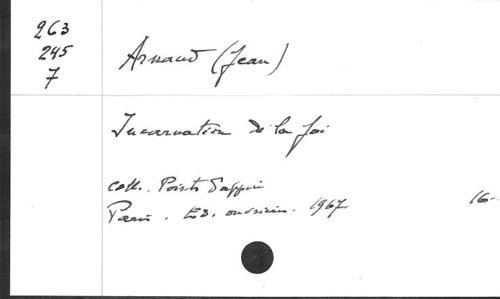 263
245
7
Arnaud (Jean)
Incarnation de la foi
coll. Points d'appui
Paris. Ed. ouvrières. 1967
16-